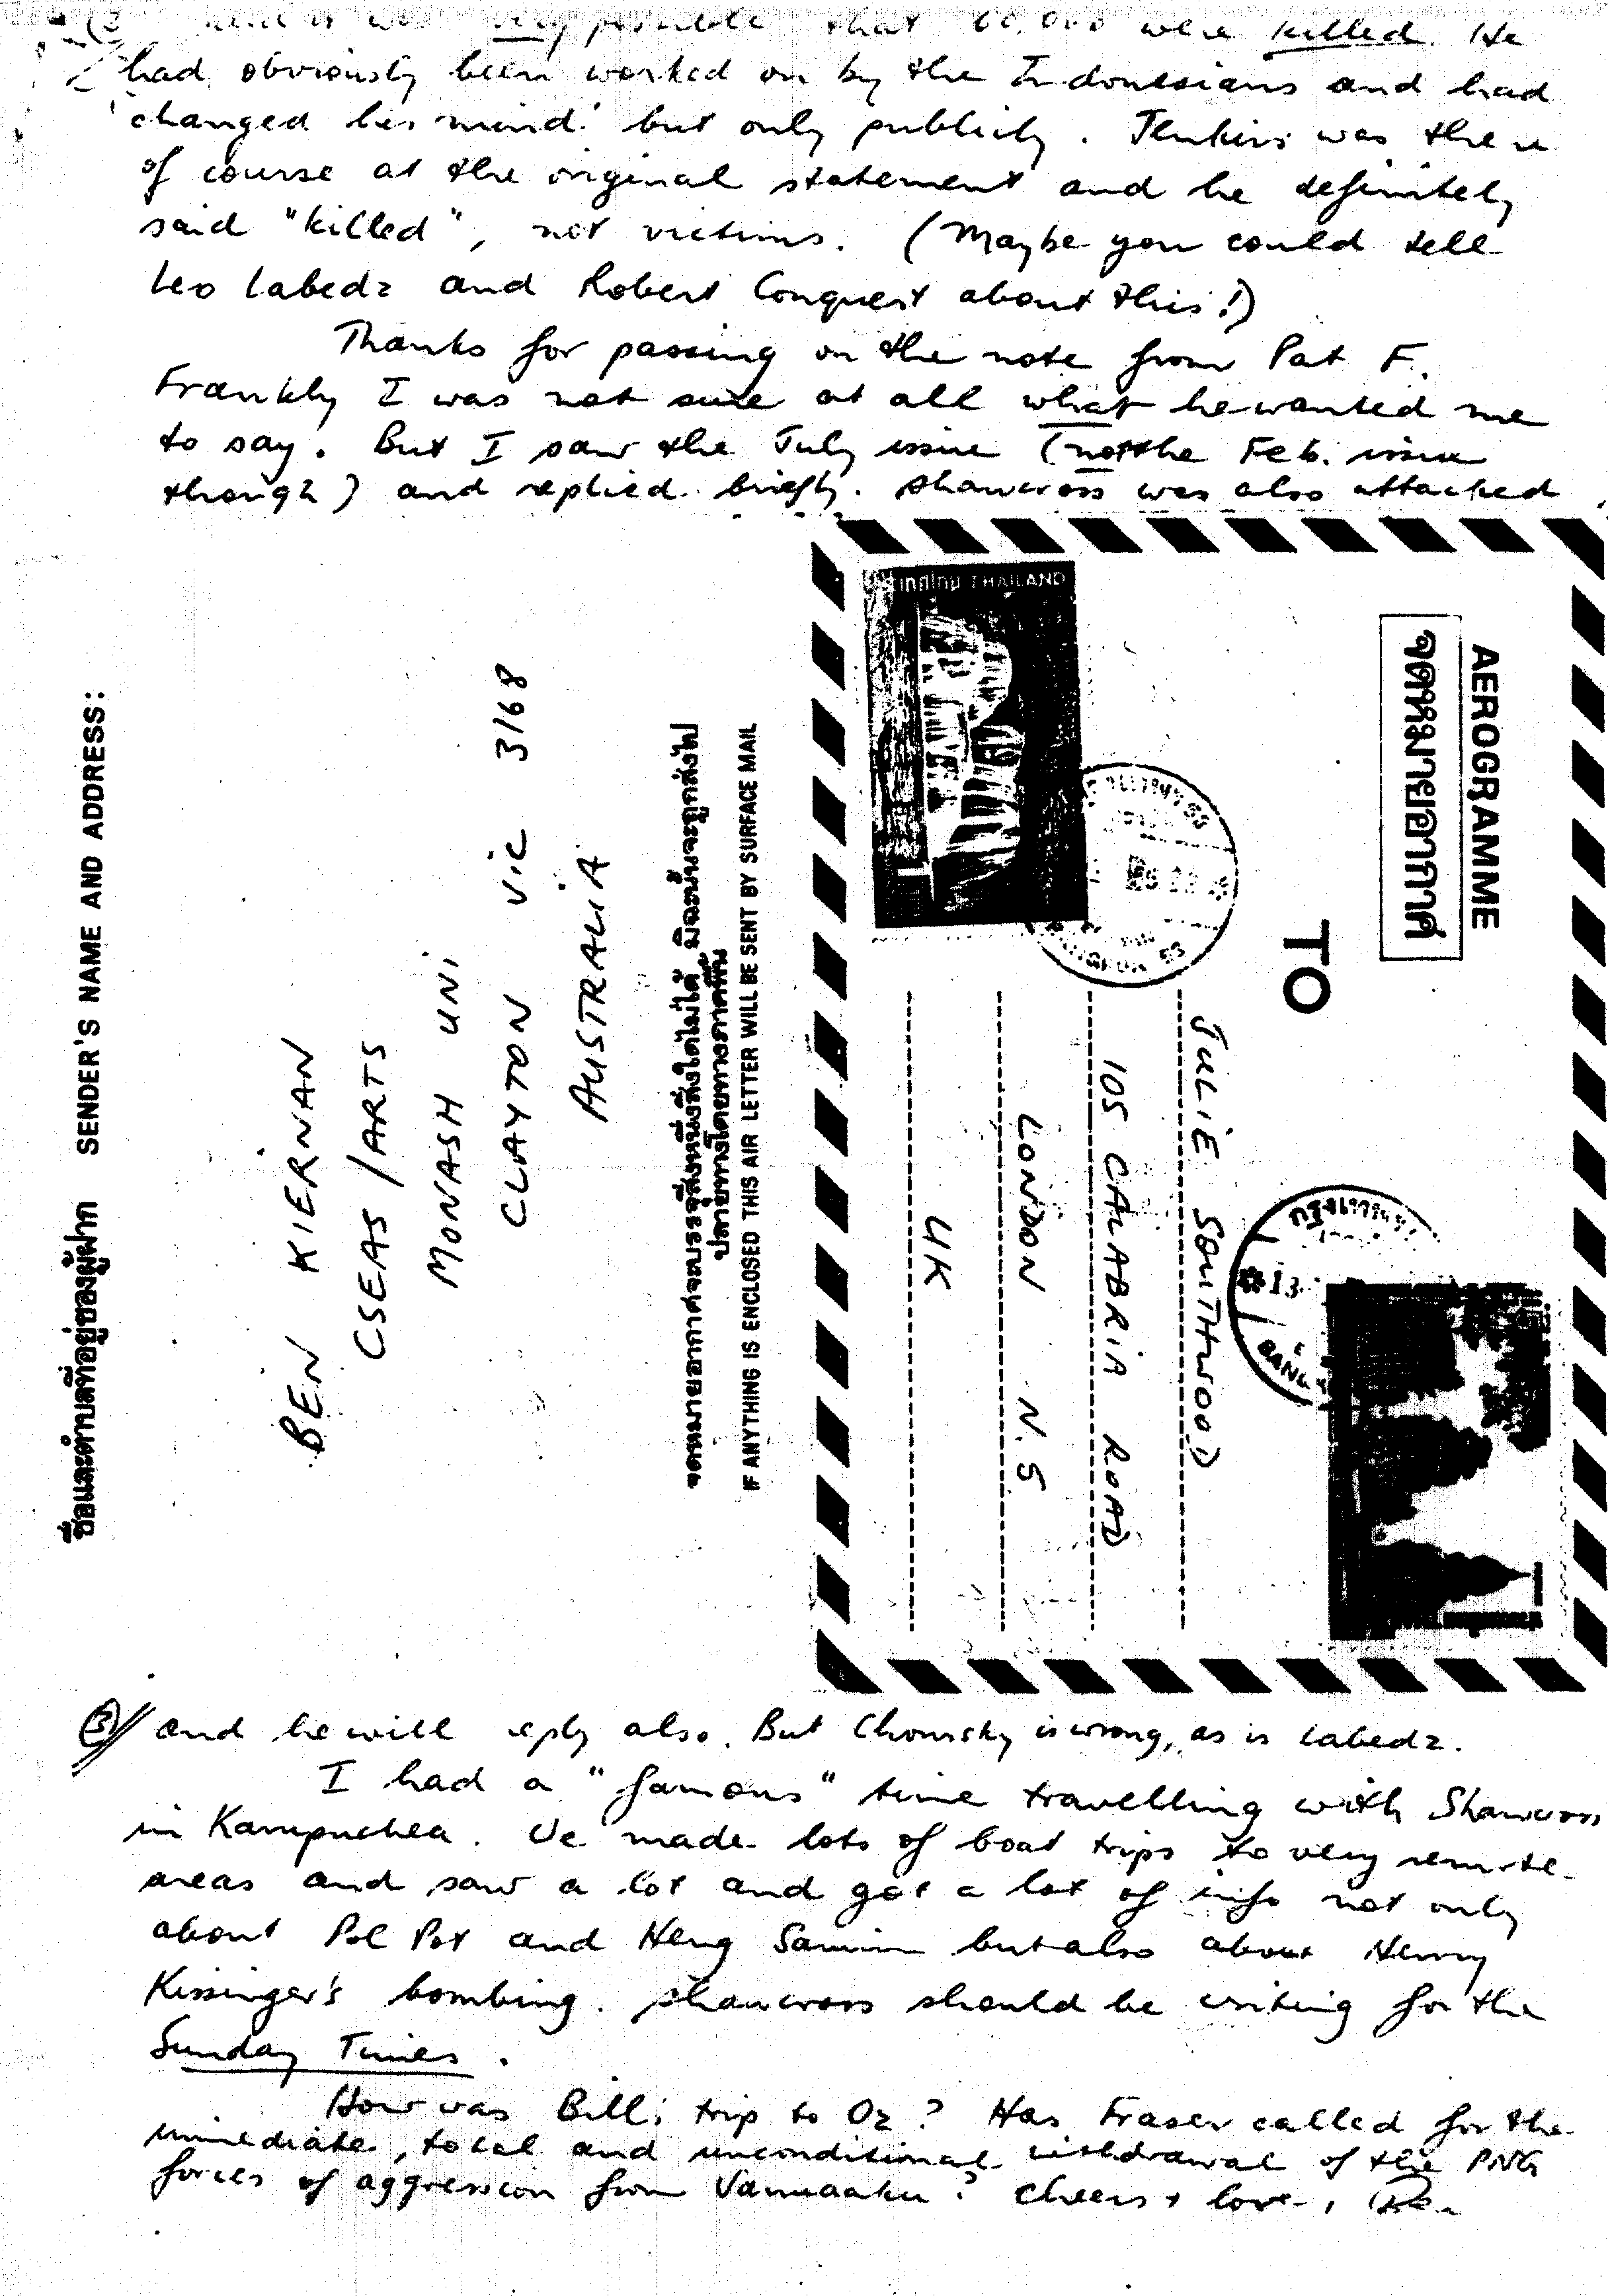 very possible that 60,000 were killed. He
had obviously been worked on by the Indonesians and had
'changed his mind' but only publicly. Jenkins was there
of course at the original statement and he definitely
said "killed", not victims. (Maybe you could tell
Leo Labedz and Robert Conquest about this!)
Thanks for passing on the note from Pat F.
Frankly I was not sure at all what he wanted me
to say. But I saw the July issue (not the Feb. issue
though) and replied briefly. Shawcross was also attacked
THAILAND
AEROGRAMME
จดหมายอากาศ
TO
JULIE SOUTHWOOD
105 CALABRIA ROAD
LONDON N.5
UK
13
ชื่อและตำบลที่อยู่ของผู้ฝาก SENDER'S NAME AND ADDRESS:
BEN KIERNAN
CSEAS/ARTS
MONASH UNI
CLAYTON VIC 3168
AUSTRALIA
จดหมายอากาศจะบรรจุสิ่งหนึ่งสิ่งใดไม่ได้ มิฉะนั้นจะถูกส่งไป
ปลายทางโดยทางภาคพื้น
IF ANYTHING IS ENCLOSED THIS AIR LETTER WILL BE SENT BY SURFACE MAIL
(3) and he will reply also. But Chomsky is wrong, as is Labedz.
I had a "famous" time travelling with Shawcross
in Kampuchea. We made lots of boat trips to very remote
areas and saw a lot and got a lot of info not only
about Pol Pot and Heng Samrin but also about Henry
Kissinger's bombing. Shawcross should be writing for the
Sunday Times.
How was Bill's trip to Oz? Has Fraser called for the
immediate, total and unconditional withdrawal of the PNG
forces of aggression from Vanuaaku? Cheers + love, Ben